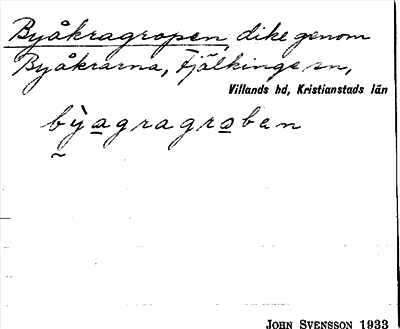 Byåkragropen, dike genom
Byåkrarna, Fjälkinge sn,
Villands hd, Kristianstads län
bỳagragraben
JOHN SVENSSON 1933